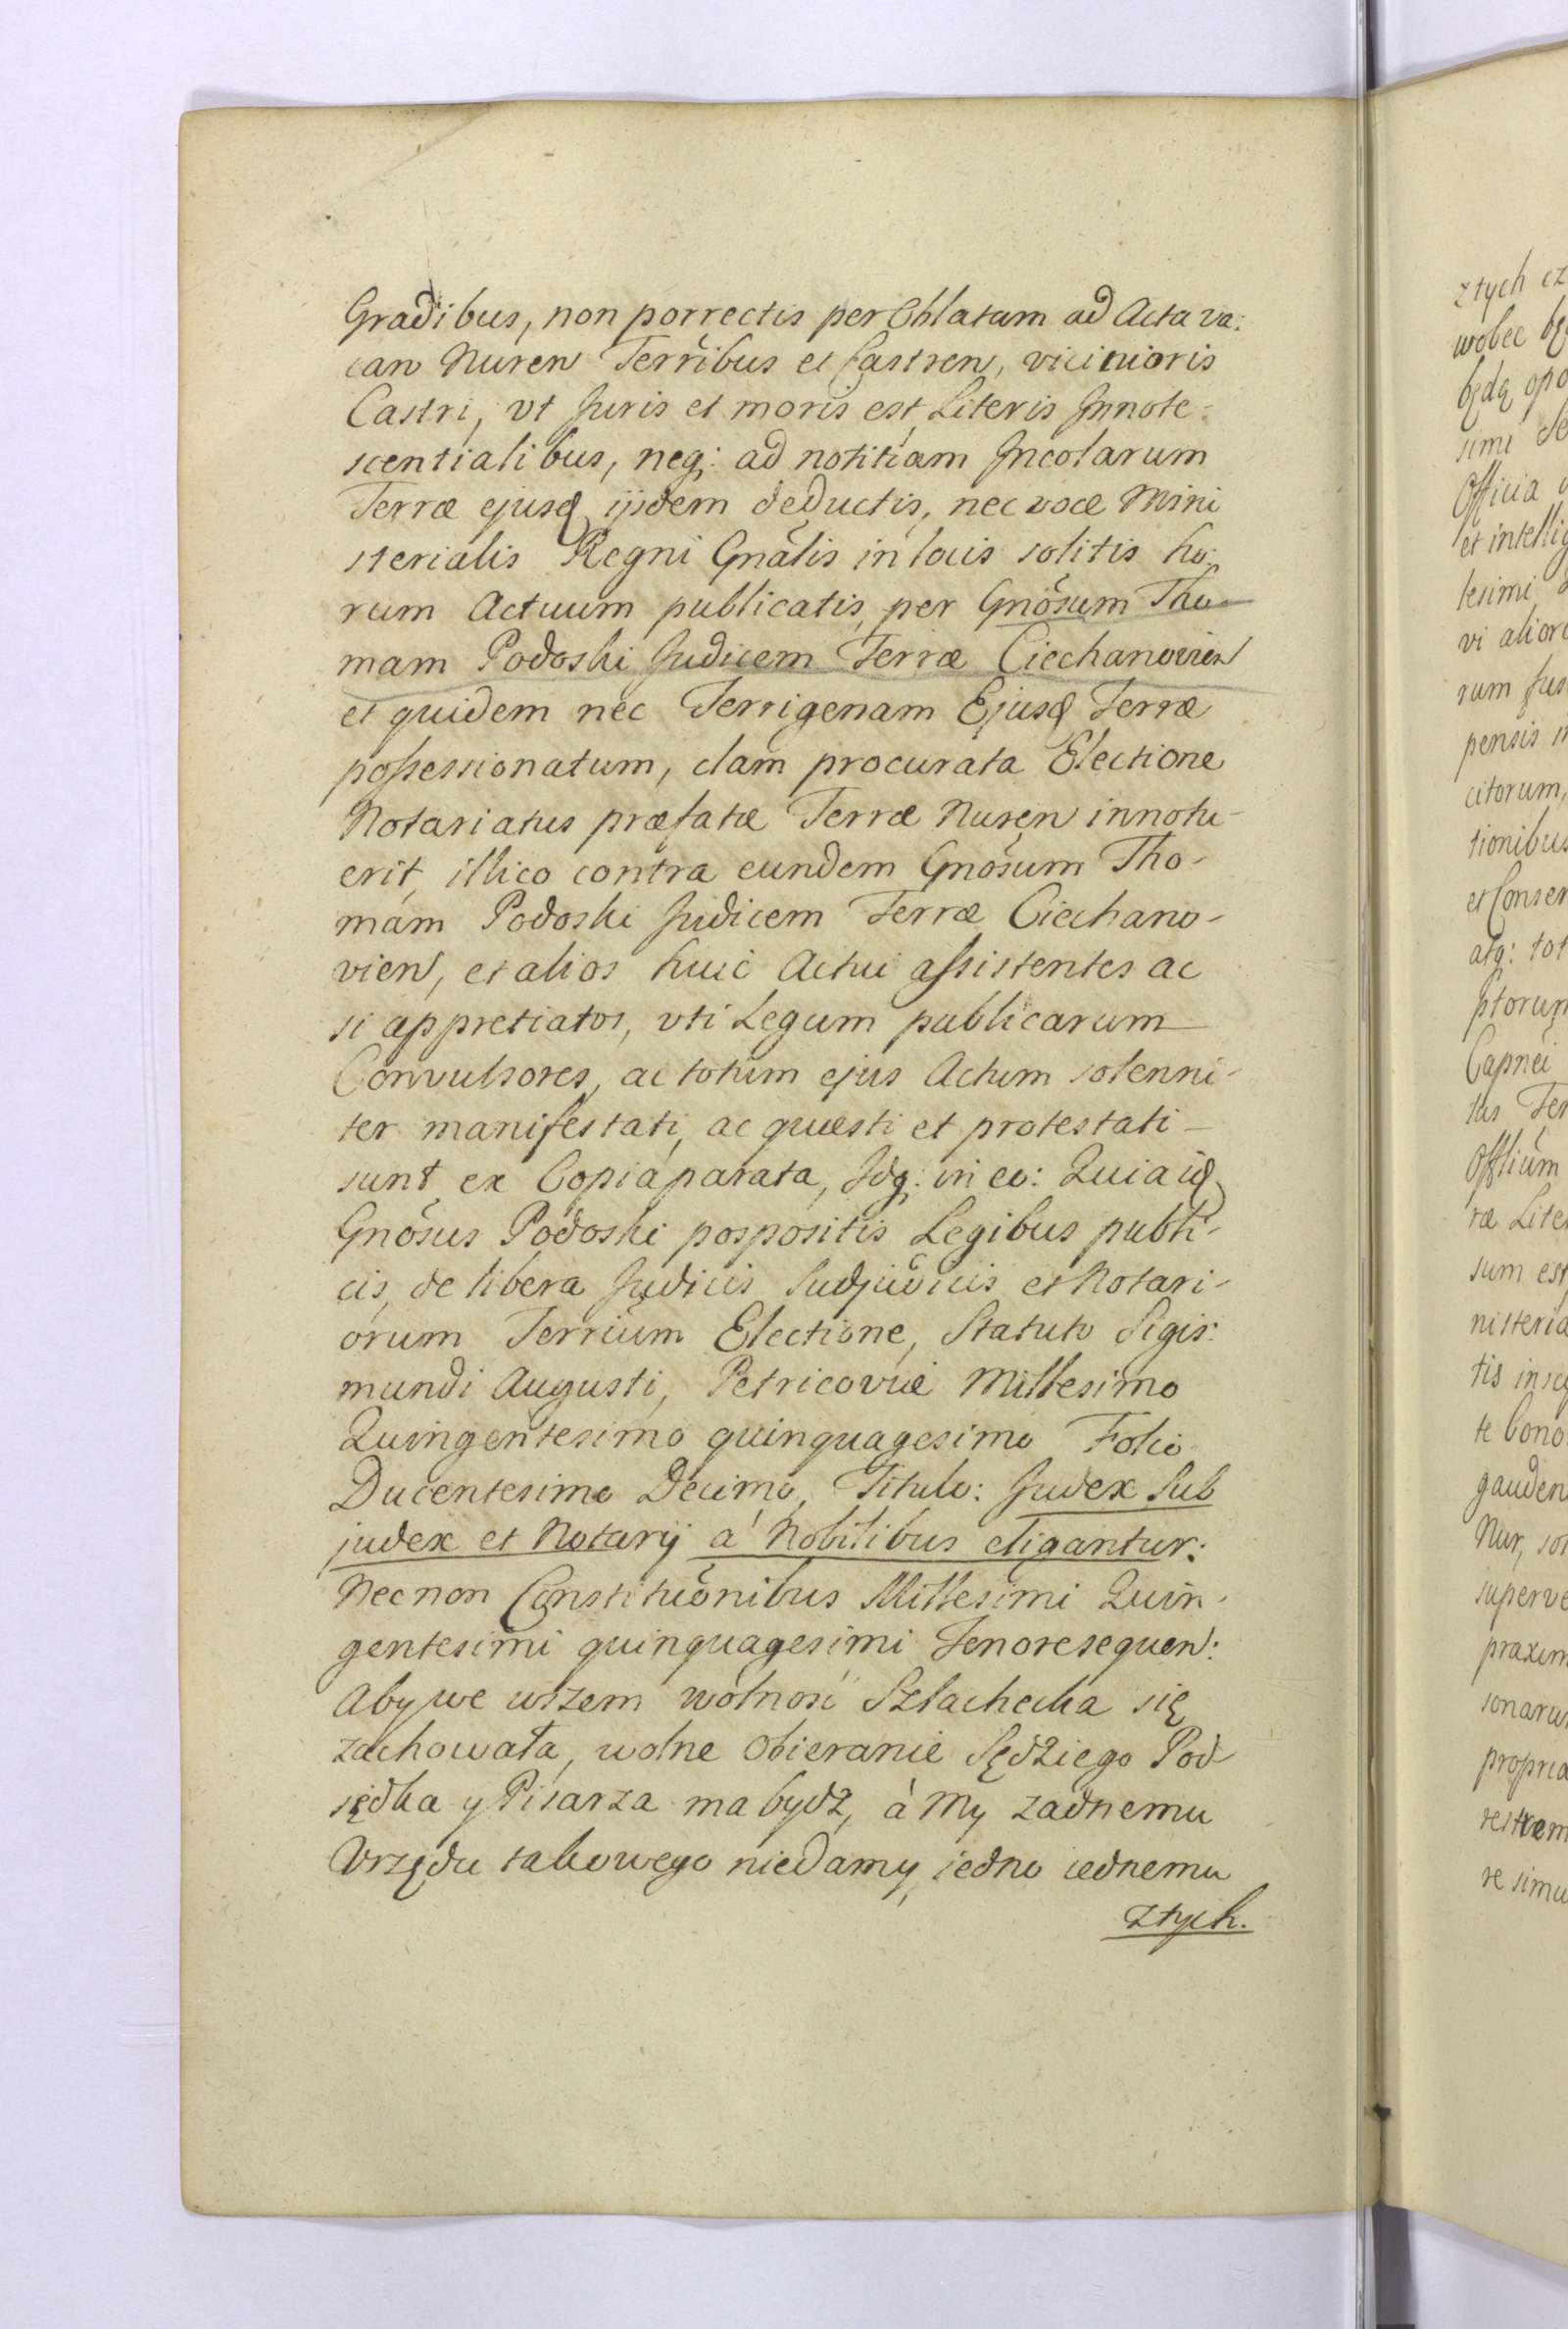 Gradibus, non porrectis per Oblatam ad Acta va:
can Nuren Terribus et Castren, vicinioris
Castri, vt Juris et moris est, Literis Jnnote:
scentialibus, neq: ad notitiam Jncolarum
Terræ ejusd ijsdem deductis, nec voce Mini
sterialis Regni Gnãlis in locis solitis ho:
rum Actuum publicatis, per Gnõsum Tho-
mam Podoski Judicem Terræ Ciechanovien
et quidem nec Terrigenam Ejusd Terræ
possessionatum, clam procurata Electione
Notariatus præfatæ Terræ Nuren innotu-
erit, illico contra eundem Gnõsum Tho-
mam Podoski Judicem Terræ Ciechano-
vien, et alios huic Actui assistentes ac
si appretiatos, vti Legum publicarum
Convulsores, ac totum ejus Actum solenni-
ter manifestati, ac quæsti et protestati -
sunt ex Copia parata, Jdq: in eo: Quia id
Gnõsus Podoski pospositis Legibus publi-
cis, de libera Judicis Sudjudicis et Notari-
orum Terrium Electione, Statuto Sigis:
mundi Augusti, Petricoviæ Millesimo
Quingentesimo quinquagesimo Folio
Ducentesimo Decimo, Titulo: Judex Sub
judex et Notarij á Nobilibus eligantur:
Nec non Constitutionibus Millesimi Quin-
gentesimi quinquagesimi Tenore sequen:
Aby we wszem wolność Szlachecka się
zachowała, wolne Obieranie Sędziego Pod
sędka y Pisarza ma bydz, à My zadnemu
Vrzędu takowego niedamy, iedno iednemu
ztych.
ztych cz
wobec bę
będą opo
simi
Officia
et intellig
lesimi
vi alior
rum Jus
pensis
citorum,
tionibus
et Conser
atq: tot
ptorum
Capnei
tus Ter
Offlium
ræ Lite
sum est
nisteria
tis
te bono
gauden
Nur,
superve
praxim
sonaru
propria
restrem
re simu